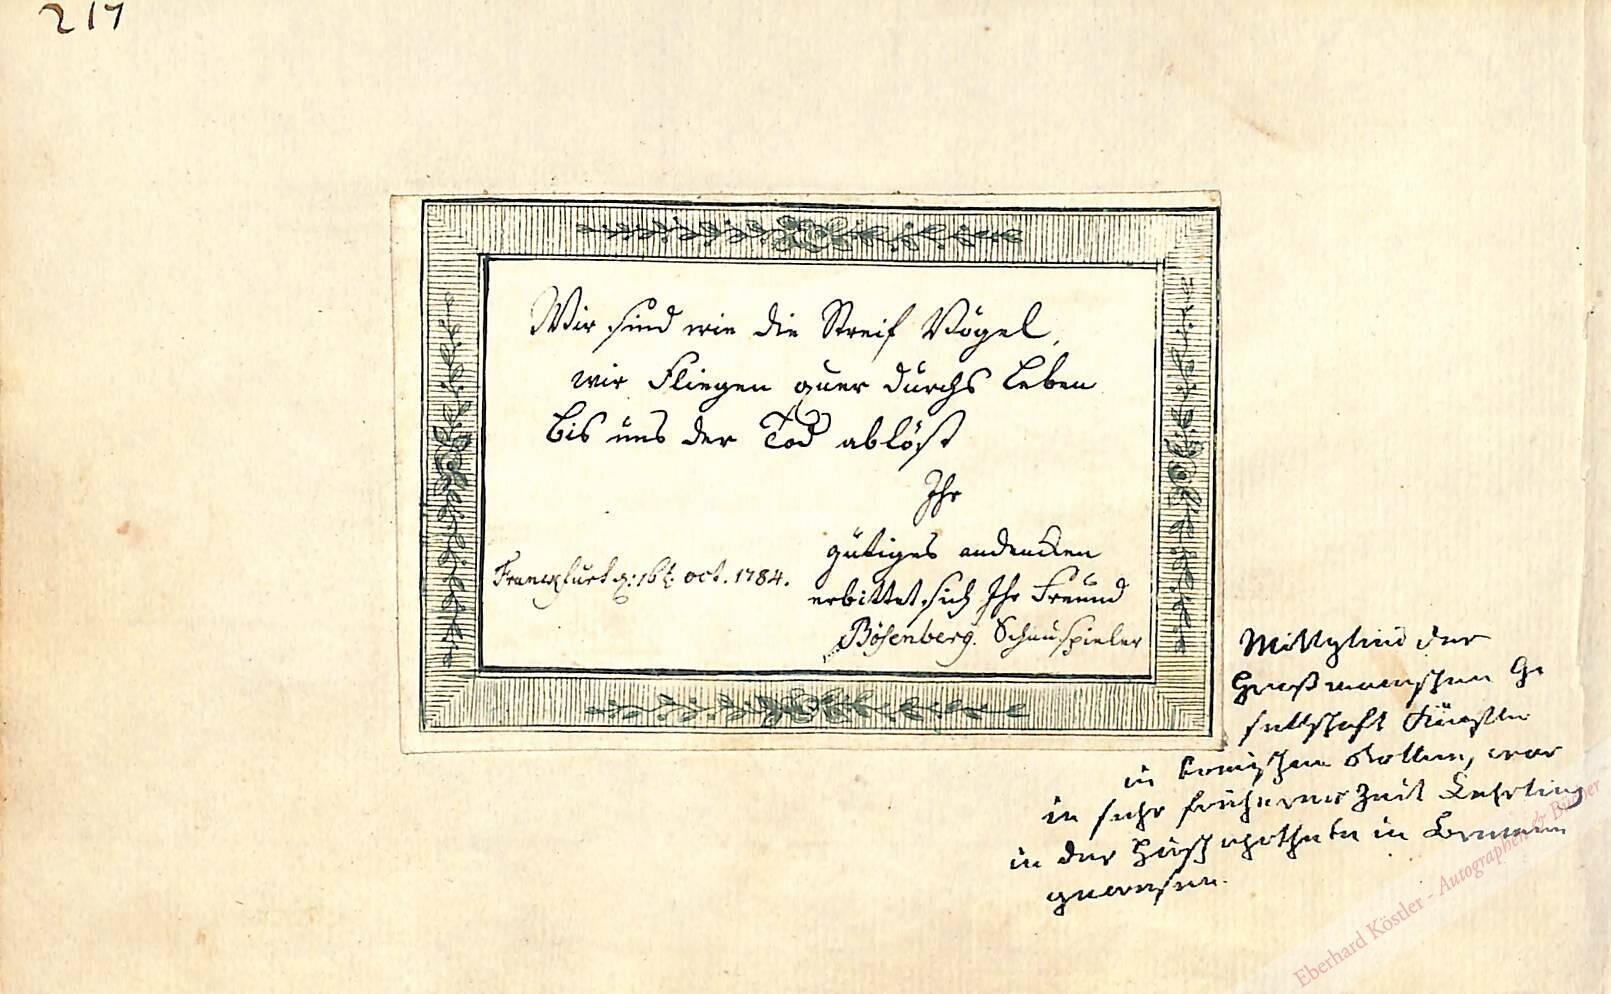 217
Wir sind wie die Streif Vögel,
wir Fliegen quer durchs Leben
bis uns der Tod ablöst
Ihr
gütiges andencken
Franckfurt d: 16t oct. 1784.
erbittet sich Ihr Freund
Bösenberg. Schauspieler
Mittglied der
Großmannschen Ge
sellschaft Künstler
in komischen Rollen, war
in sehr früherer Zeit Lehrling
in der Apotheke in Bremen
gewesen.
Eberhard Köstler - Autographen & Bücher